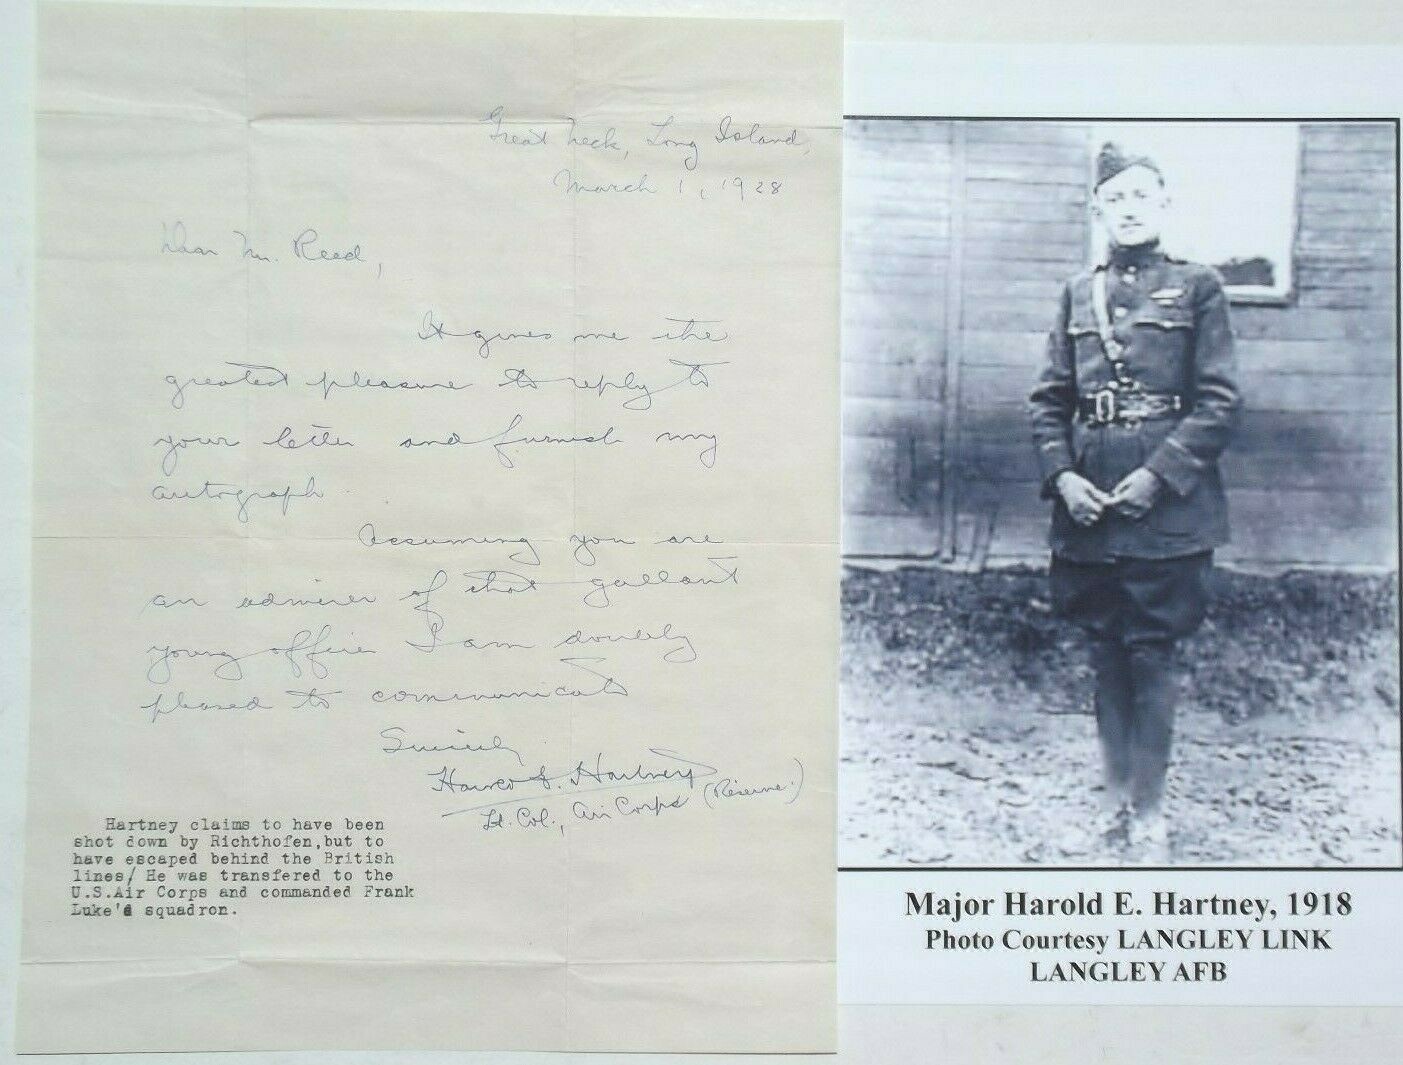 Great Neck, Long Island,
March 1, 1928
Dear Mr. Reed,
It gives me the
greatest pleasure to reply to
your letter and furnish my
autograph.
Assuming you are
an admirer of that gallant
young officer I am doubly
pleased to communicate
Sincerely
Harold E. Hartney
Lt. Col., Air Corps (Reserve.)
Hartney claims to have been
shot down by Richthofen,but to
have escaped behind the British
lines/ He was transfered to the
U.S.Air Corps and commanded Frank
Luke'd squadron.
Major Harold E. Hartney, 1918
Photo Courtesy LANGLEY LINK
LANGLEY AFB